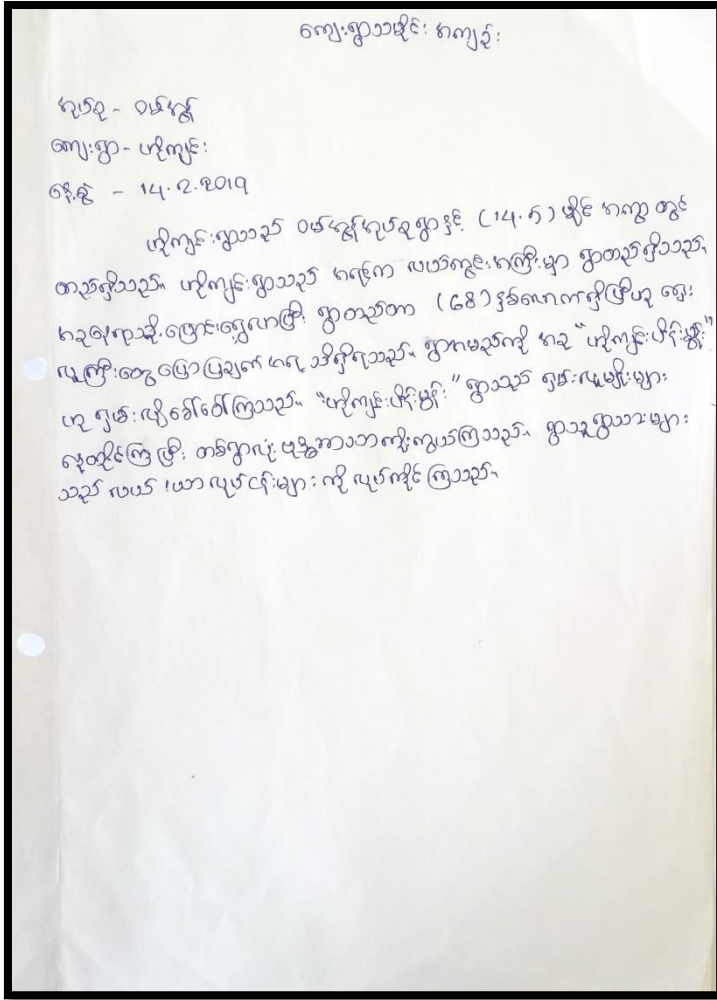 ကျေးရွာသမိုင်း အကျဉ်း
အုပ်စု - ဝမ်အွန်
ကျေးရွာ - ဟိုကျင်း
နေ့စွဲ - 14.2.2019
ဟိုကျင်းရွာသည် ဝမ်အွန်အုပ်စုရွာနှင့် (14.5) မိုင် အကွာ တွင်
တည်ရှိသည်။ ဟိုကျင်းရွာသည် အရင်က လယ်ကွင်းအကြီးမှာ ရွာတည်ရှိသည်။
အခုနေရာသို့ ပြောင်းရွှေ့လာပြီး ရွာတည်တာ (68) နှစ်လောက်ရှိပြီဟု ရှေး
လူကြီးတွေပြောပြချက်အရ သိရှိရသည်။ ရွာအမည်ကို အခု "ဟိုကျင်း
ဟု ရှမ်းလိုခေါ်ဝေါ်ကြသည်။ "ဟိုကျင်း ရွာသည် ရှမ်းလူမျိုးများ
နေထိုင်ကြပြီး တစ်ရွာလုံး ဗုဒ္ဓဘာသာကိုးကွယ်ကြသည်။ ရွာသူရွာသားများ
သည် လယ် ၊ယာလုပ်ငန်းများ ကို လုပ်ကိုင်ကြသည်။